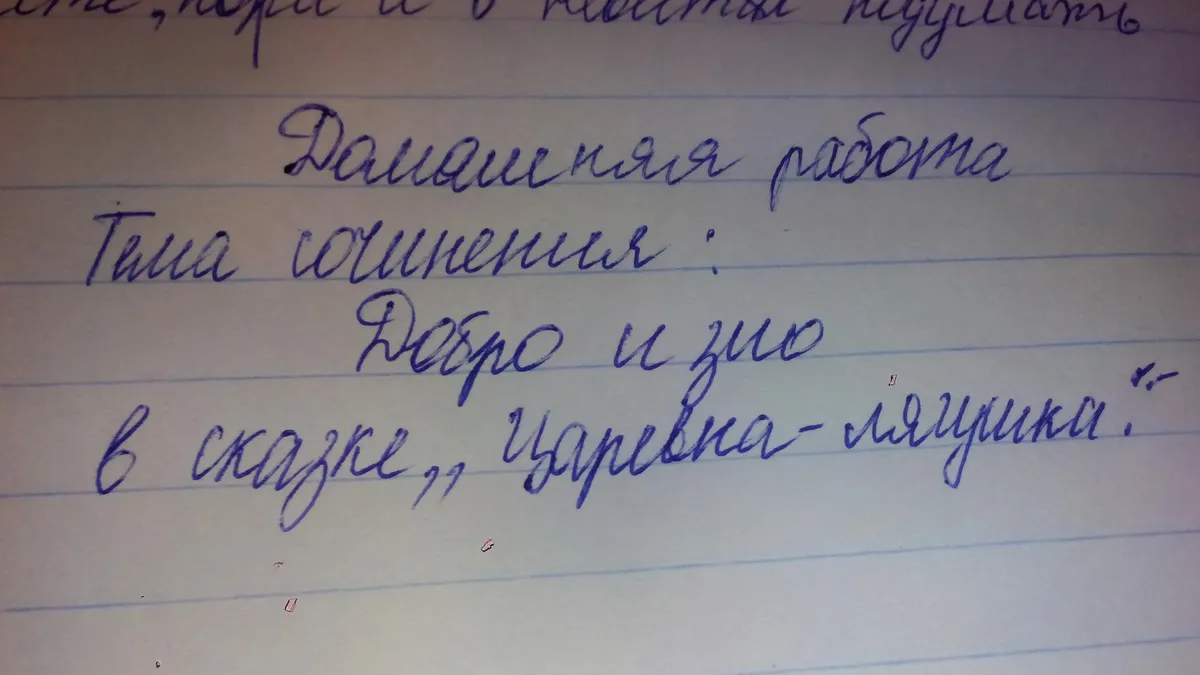 и в
Домашняя работа
Тема сочинения:
Добро и зло
в сказке „Царевна-лягушка."